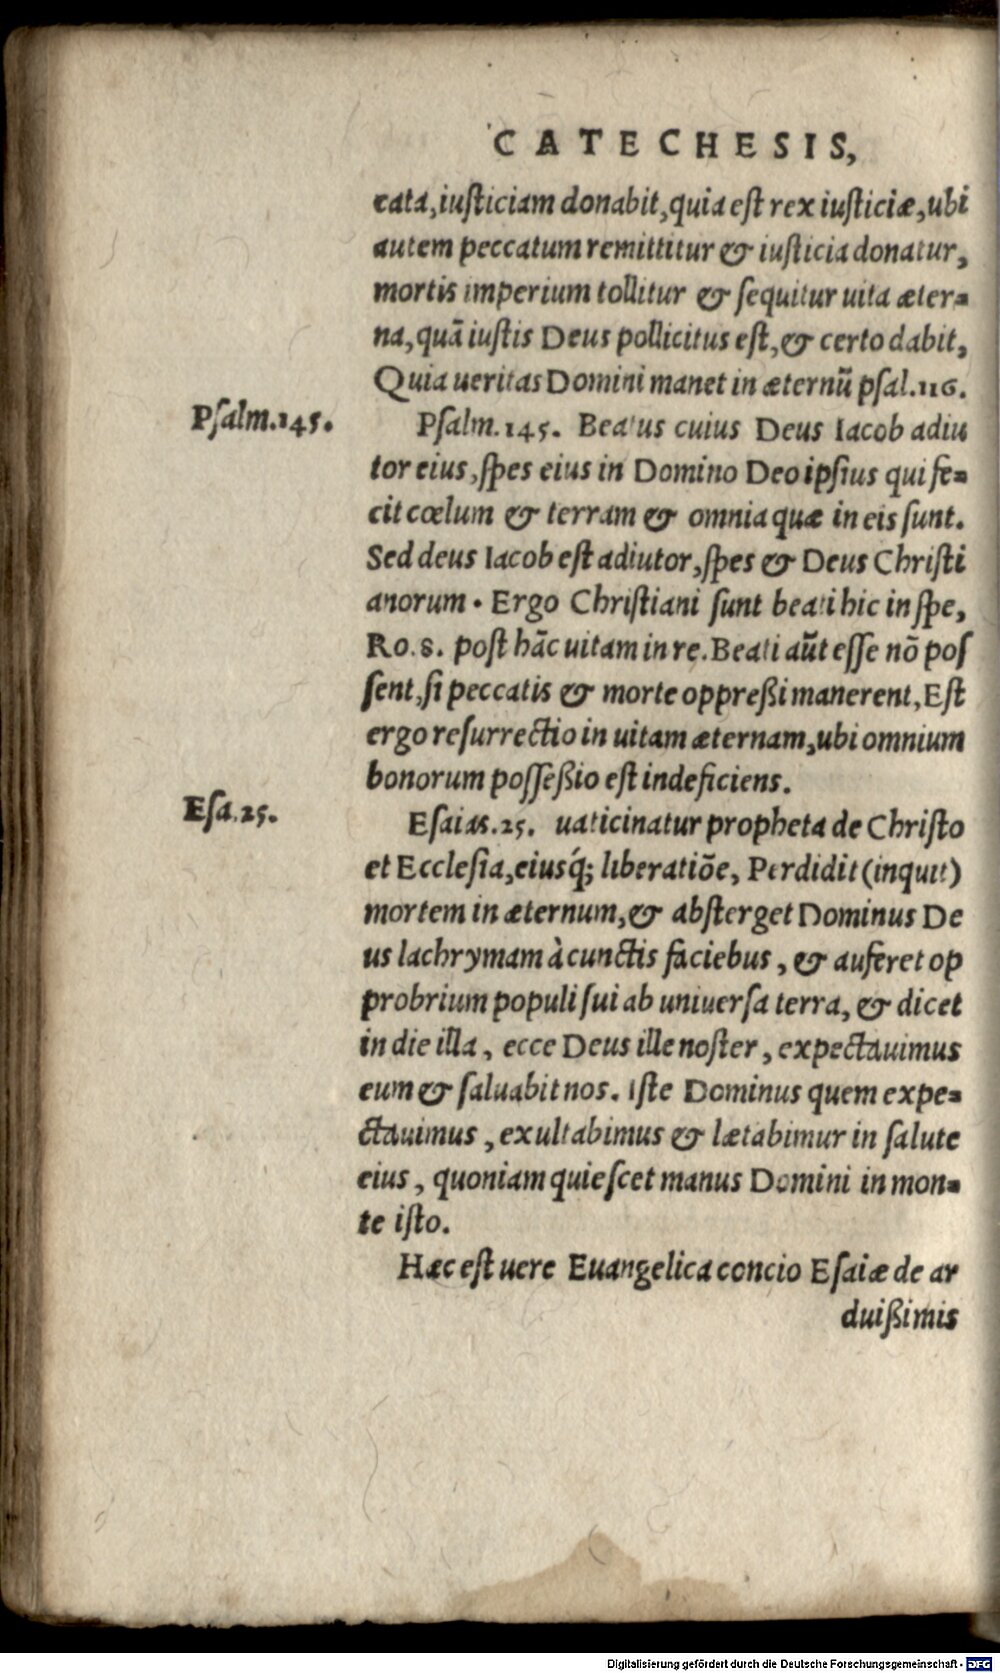 CATECHESIS,
cata, iusticiam donabit, quia est rex iusticiæ, ubi
autem peccatum remittitur & iusticia donatur,
mortis imperium tollitur & sequitur uita æter=
na, quā iustis Deus pollicitus est, & certo dabit,
Quia ueritas Domini manet in æternū psal. 116.
Psalm. 145.
Psalm. 145. Beatus cuius Deus Iacob adiu
tor eius, spes eius in Domino Deo ipsius qui fe=
cit cœlum & terram & omnia quæ in eis sunt.
Sed deus Iacob est adiutor, spes & Deus Christi
anorum. Ergo Christiani sunt beati hic in spe,
Ro. 8. post hāc uitam in re. Beati aūt esse nō pos
sent, si peccatis & morte oppreßi manerent, Est
ergo resurrectio in uitam æternam, ubi omnium
bonorum posseßio est indeficiens.
Esa. 25.
Esaias. 25. uaticinatur propheta de Christo
et Ecclesia, eiusq́; liberatiōe, Perdidit (inquit)
mortem in æternum, & absterget Dominus De
us lachrymam à cunctis faciebus, & auferet op
probrium populi sui ab uniuersa terra, & dicet
in die illa, ecce Deus ille noster, expectauimus
eum & saluabit nos. Iste Dominus quem expe=
ctauimus, exultabimus & lætabimur in salute
eius, quoniam quiescet manus Domini in mon=
te isto.
Hæc est uere Euangelica concio Esaiæ de ar
duißimis
Digitalisierung gefördert durch die Deutsche Forschungsgemeinschaft - DFG